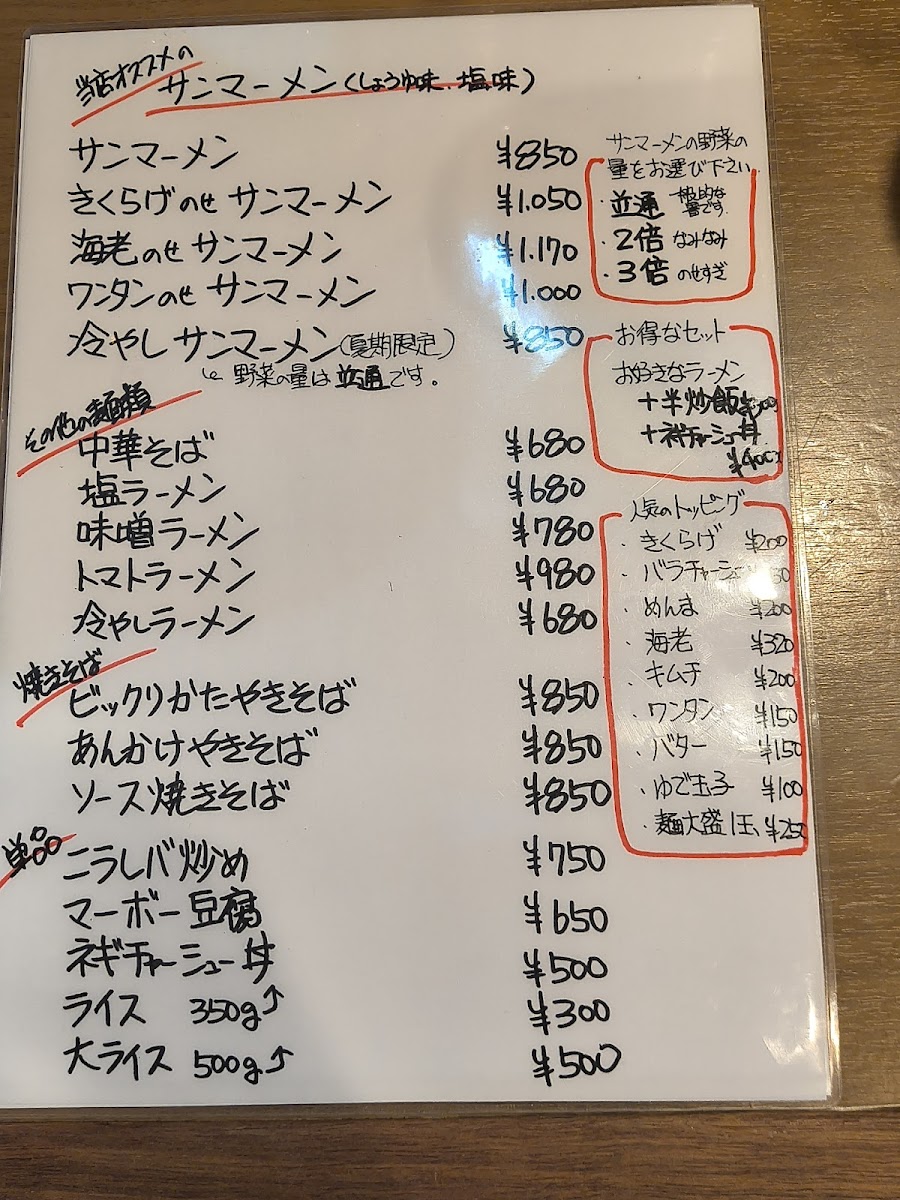 当店オススメの
サンマーメン(しょうゆ味、塩味)
サンマーメン ¥850
きくらげのせ サンマーメン ¥1.050
海老のせ サンマーメン ¥1.170
ワンタンのせ サンマーメン ¥1.000
冷やし サンマーメン(夏期限定) ¥850
野菜の量は並通です。
その他の麺類
中華そば ¥680
塩ラーメン ¥680
味噌ラーメン ¥780
トマトラーメン ¥980
冷やしラーメン ¥680
焼きそば
ビックリかたやきそば ¥850
あんかけやきそば ¥850
ソース焼きそば ¥850
単品
ニラレバ炒め ¥750
マーボー豆腐 ¥650
ネギチャーシュー丼 ¥500
ライス 350g↑ ¥300
大ライス 500g↑ ¥500
サンマーメンの野菜の
量をお選び下さい
・並通 一般的な
量です.
・2倍 なみなみ
・3倍 のせすぎ
お得なセット
お好きなラーメン
+半炒飯
+ネギチャーシュー丼
¥400
人気のトッピング
・きくらげ ¥200
・バラチャーシュー
・めんま ¥200
・海老 ¥320
・キムチ ¥200
・ワンタン ¥150
・バター ¥150
・ゆで玉子 ¥100
・麺大盛1玉 ¥250